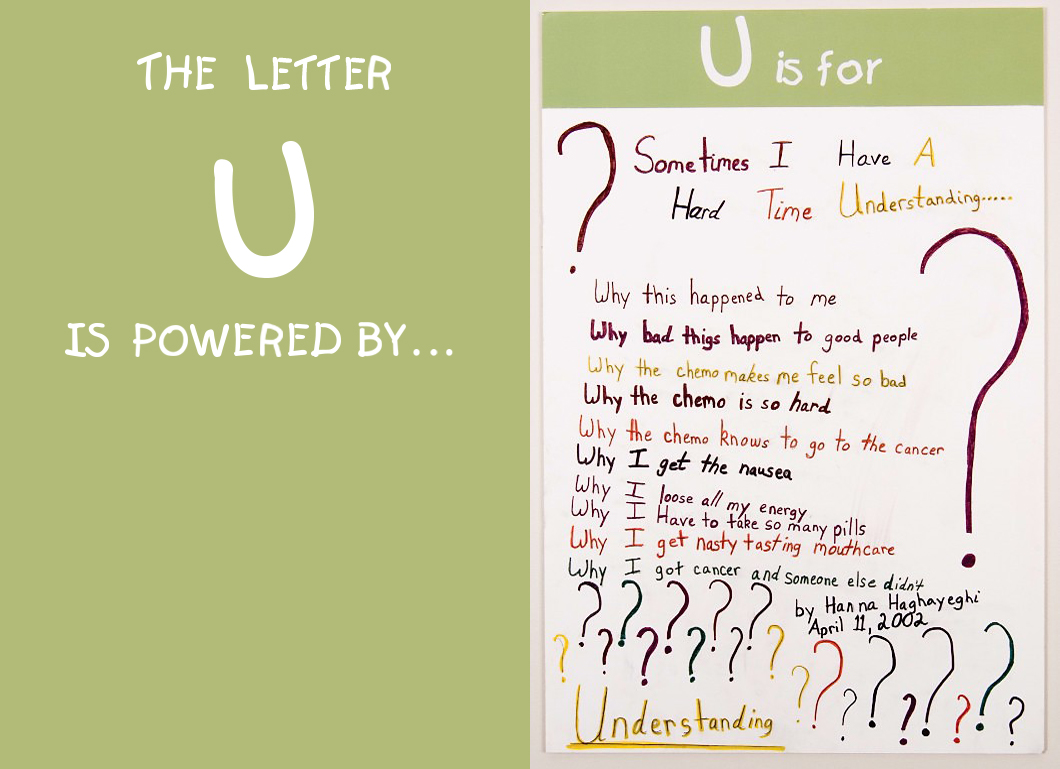 THE LETTER
U
IS POWERED BY...
U is for
? Sometimes I Have A
Hard Time Understanding.....
?
Why this happened to me
Why bad thigs happen to good people
Why the chemo makes me feel so bad
Why the chemo is so hard
Why the chemo knows to go to the cancer
Why I get the nausea
Why I loose all my energy
Why I Have to take so many pills
Why I get nasty tasting mouthcare
Why I got cancer and someone else didn't
by Hanna Haghayeghi
April 11, 2002
? ? ? ? ? ? ? ? ? ? ?
? ? ? ? ? ? ? ? ?
Understanding